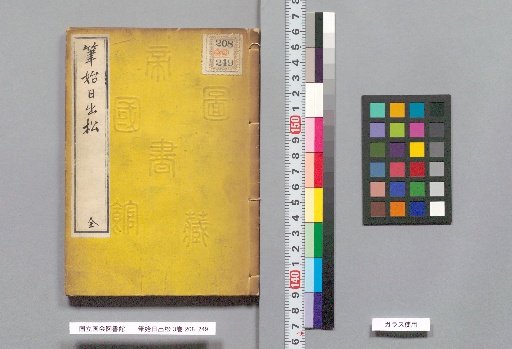 筆始日出松
全
208
249
帝國
圖書
館藏
国立国会図書館 筆始日出松 3巻 208-249
ガラス使用
6 7 8 9 150 1 2 3 4 5 6 7 8 9 140 1 2 3 4 5 6 7 8